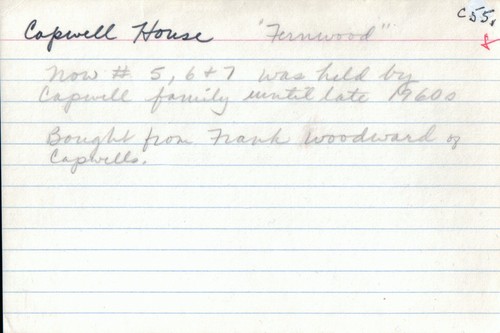 C55.
Capwell House "Fernwood"
Now # 5, 6 + 7 was held by
Capwell family until late 1960s
Bought from Frank Woodward of
Capwells.